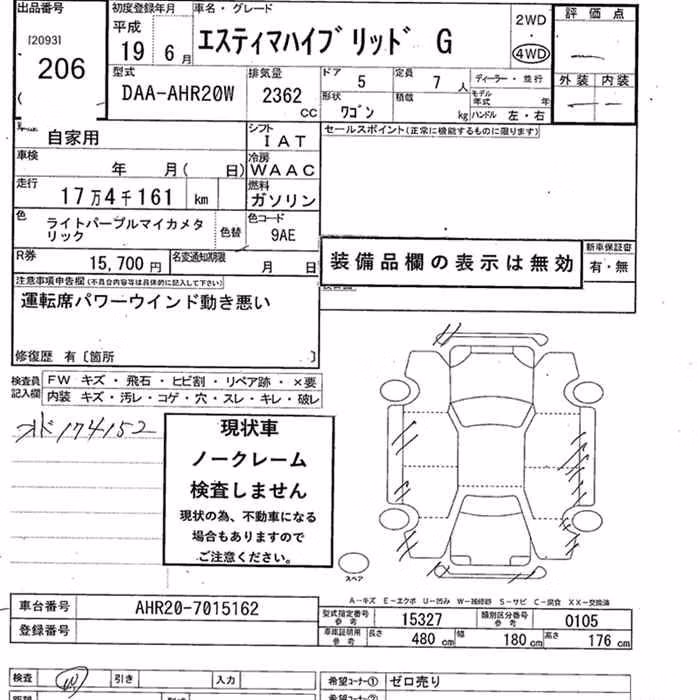 出品番号
[2093]
206
初度登録年月
平成
19年 6月
車名・グレード
エスティマハイブリッド G
2WD
・
4WD
評価点
外装 内装
型式
DAA-AHR20W
排気量
2362
CC
ドア 5
定員 7 人
形状 ワゴン
積載 kg
ディーラー・並行
モデル年式 年
ハンドル 左・右
自家用
シフト
IAT
セールスポイント(正常に機能するものに限ります)
車検
年 月( 日)
冷房
WAAC
走行
17万4千161 km
燃料
ガソリン
色
ライトパープルマイカメタリック
色替
色コード
9AE
R券
15,700円
名変通知期限
月 日
装備品欄の表示は無効
新車保証書
有・無
注意事項申告欄(不具合内容等は具体的に記入して下さい)
運転席パワーウインド動き悪い
修復歴 有〔箇所 〕
検査員記入欄
FW キズ・飛石・ヒビ割・リペア跡・×要
内装 キズ・汚レ・コゲ・穴・スレ・キレ・破レ
オド174152
現状車
ノークレーム
検査しません
現状の為、不動車になる
場合もありますので
ご注意ください。
スペア
A-キズ E-エクボ U-凹み W-補修跡 S-サビ C-腐食 XX-交換済
車台番号 AHR20-7015162
登録番号
型式指定番号 参考 15327
類別区分番号 参考 0105
車庫証明用 参考 長さ 480cm 幅 180cm 高さ 176cm
検査
引き
入力
希望コーナー① ゼロ売り
希望コーナー②